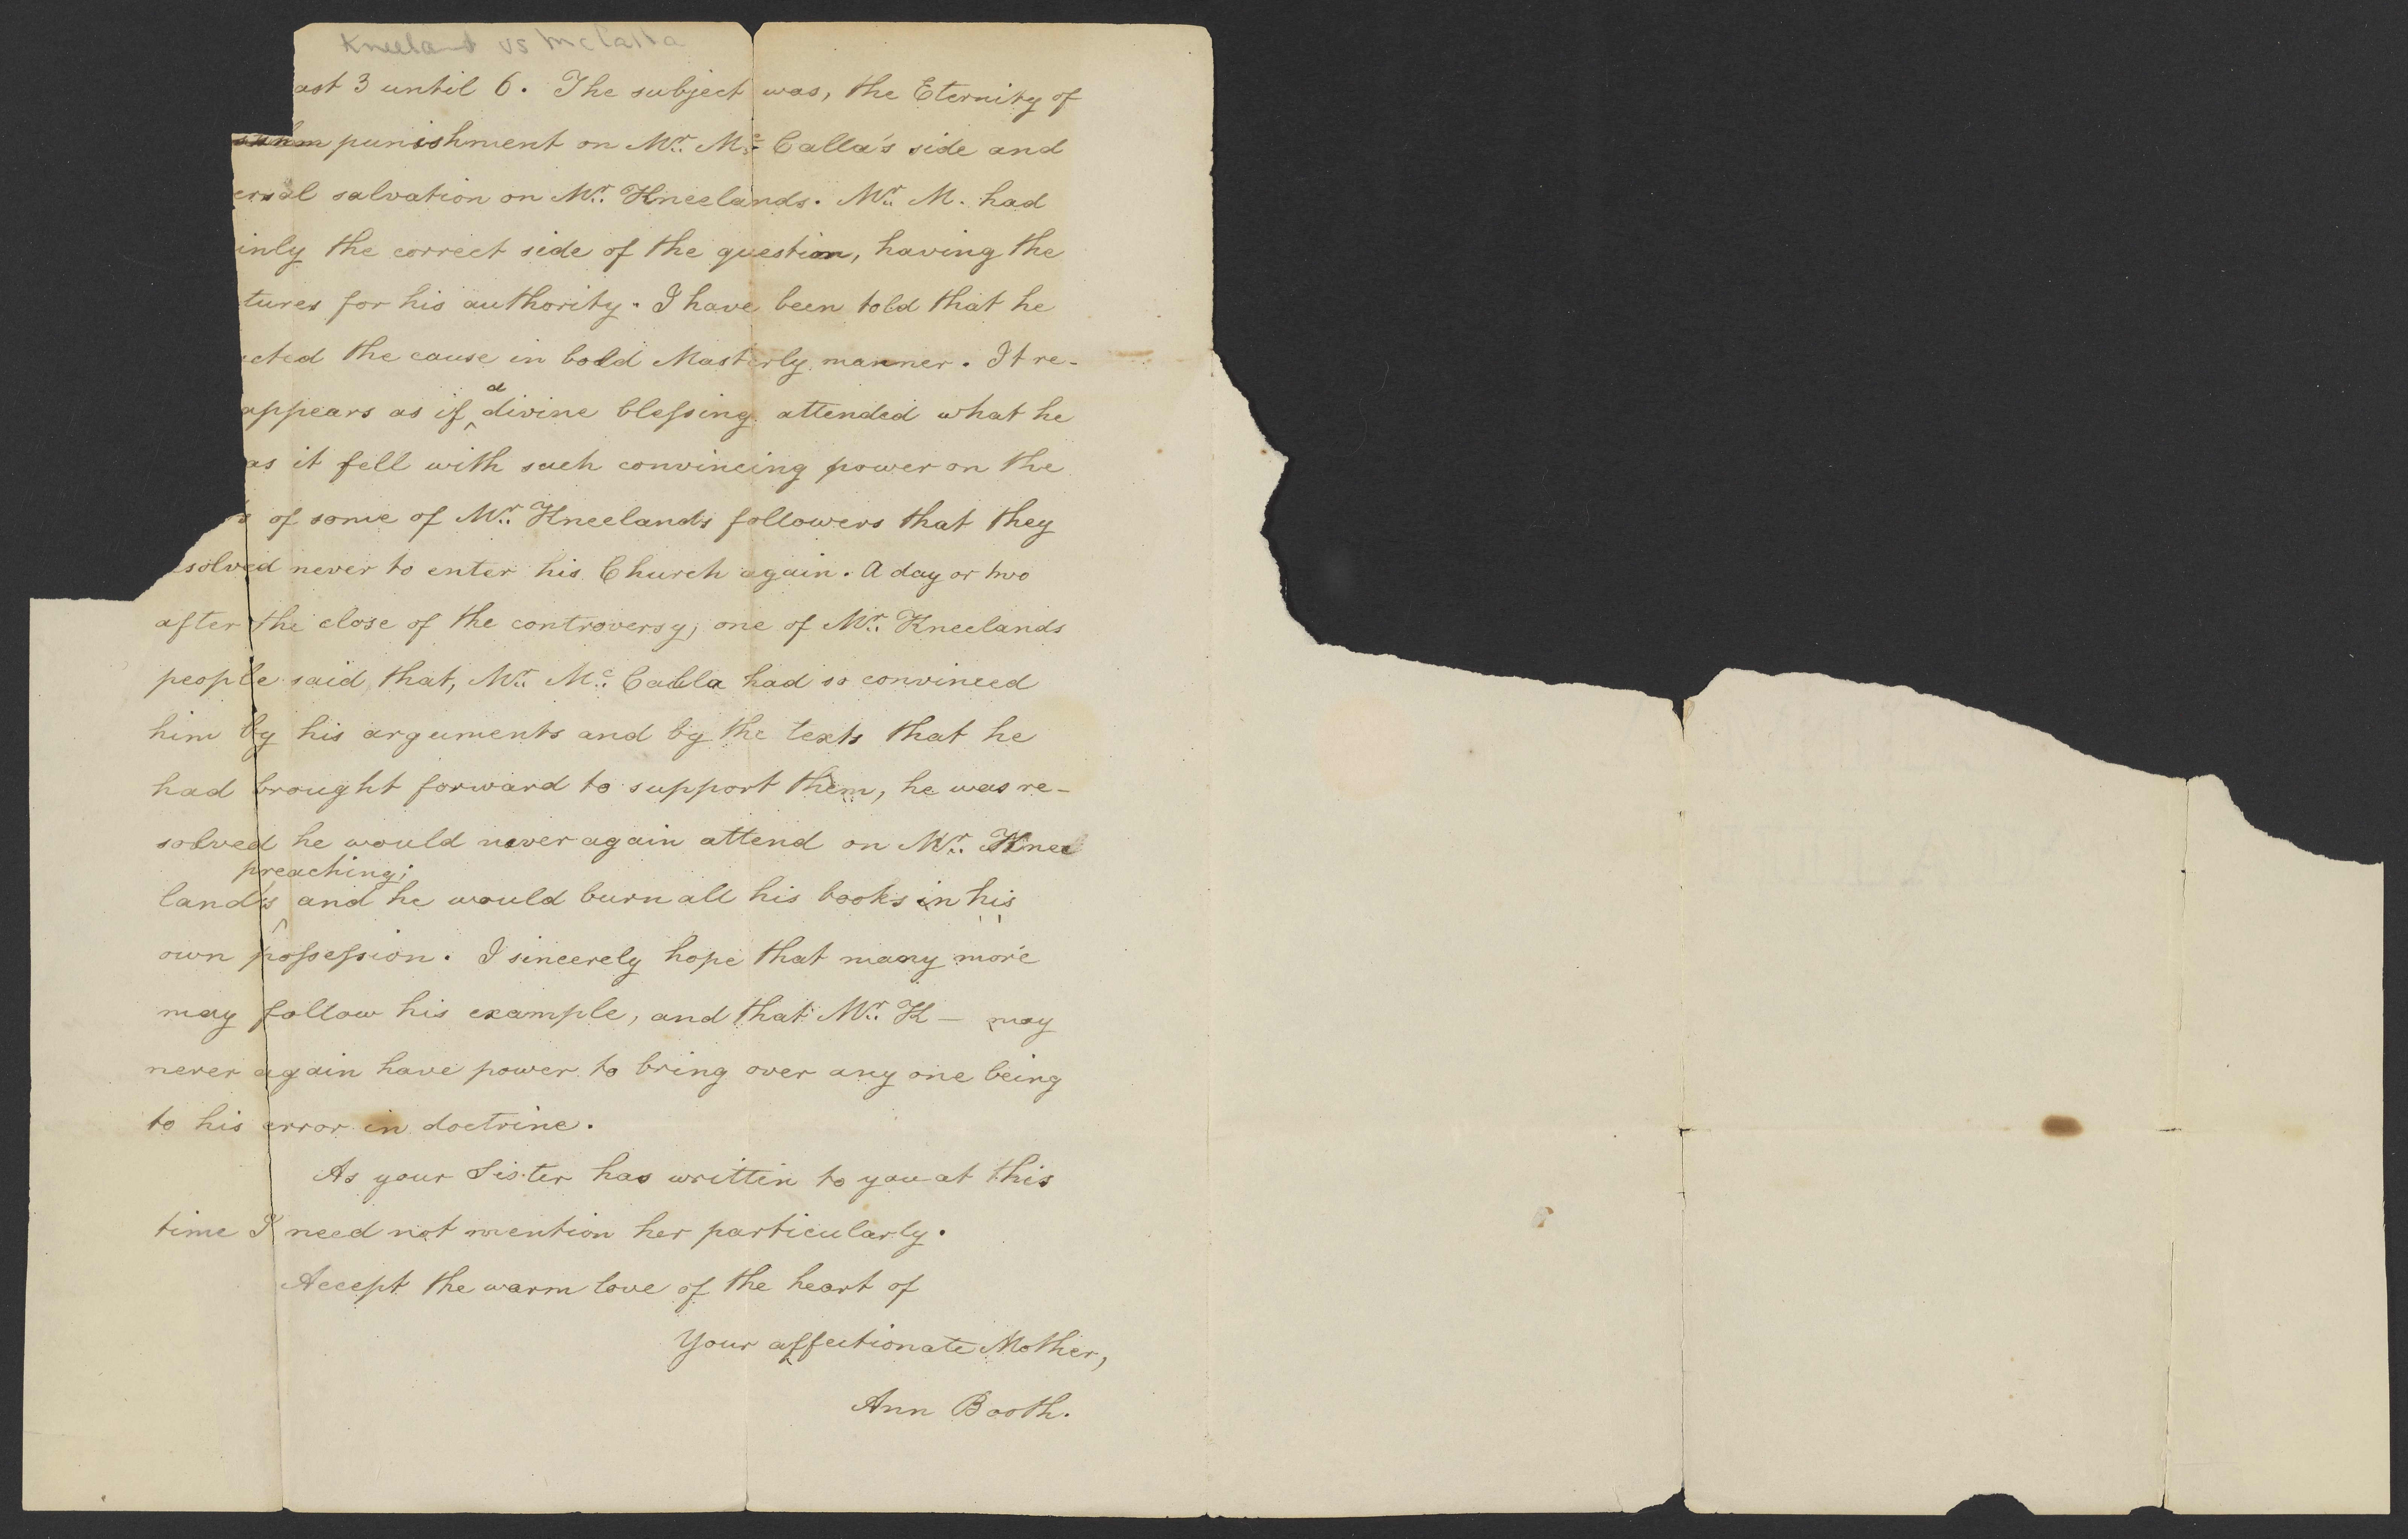 Kneeland vs McCalla
ast 3 until 6. The subject was, the Eternity of
punishment on Mr. Mc. Calla's side and
ersal salvation on Mr. Kneelands. Mr. M. had
inly the correct side of the question, having the
tures for his authority. I have been told that he
cted the cause in bold Masterly manner. It re-
appears as if a divine blessing attended what he
as it fell with such convincing power on the
s of some of Mr. Kneelands followers that they
esolved never to enter his Church again. A day or two
after the close of the controversy, one of Mr. Kneelands
people said, that, Mr. Mc. Calla had so convinced
him by his arguments and by the texts that he
had brought forward to support them, he was re-
solved he would never again attend on Mr. Knee
land's preaching; and he would burn all his books in his
own possession. I sincerely hope that many more
may follow his example, and that Mr. K — may
never again have power to bring over any one being
to his error in doctrine.
As your Sister has written to you at this
time I need not mention her particularly.
Accept the warm love of the heart of
Your affectionate Mother,
Ann Booth.